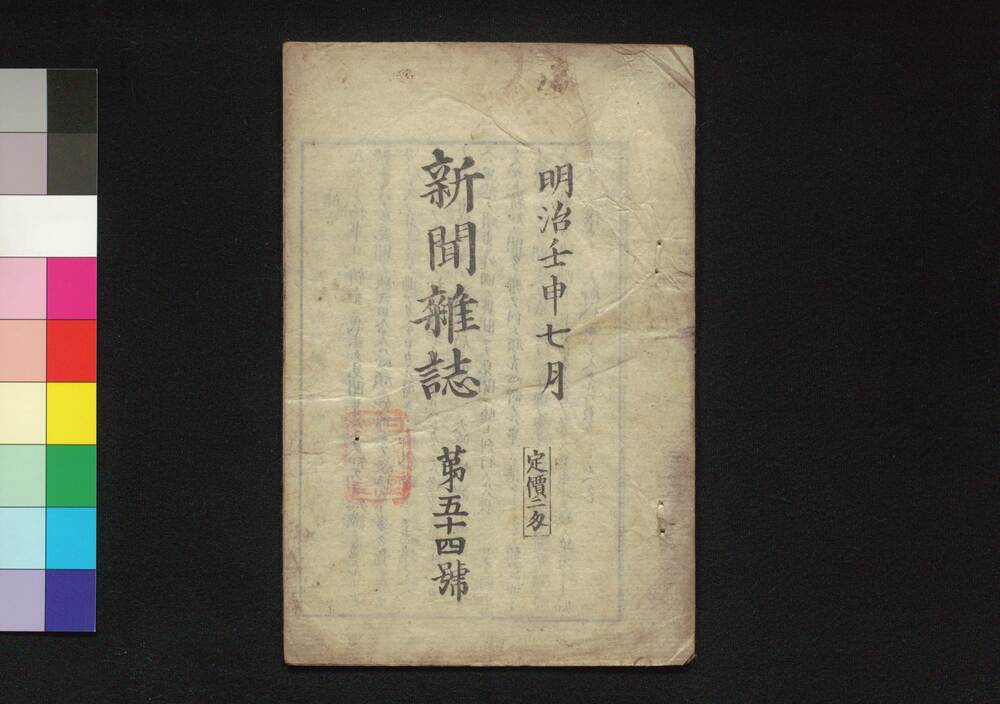 明治壬申七月
定價二匁
新聞雜誌
第五十四號